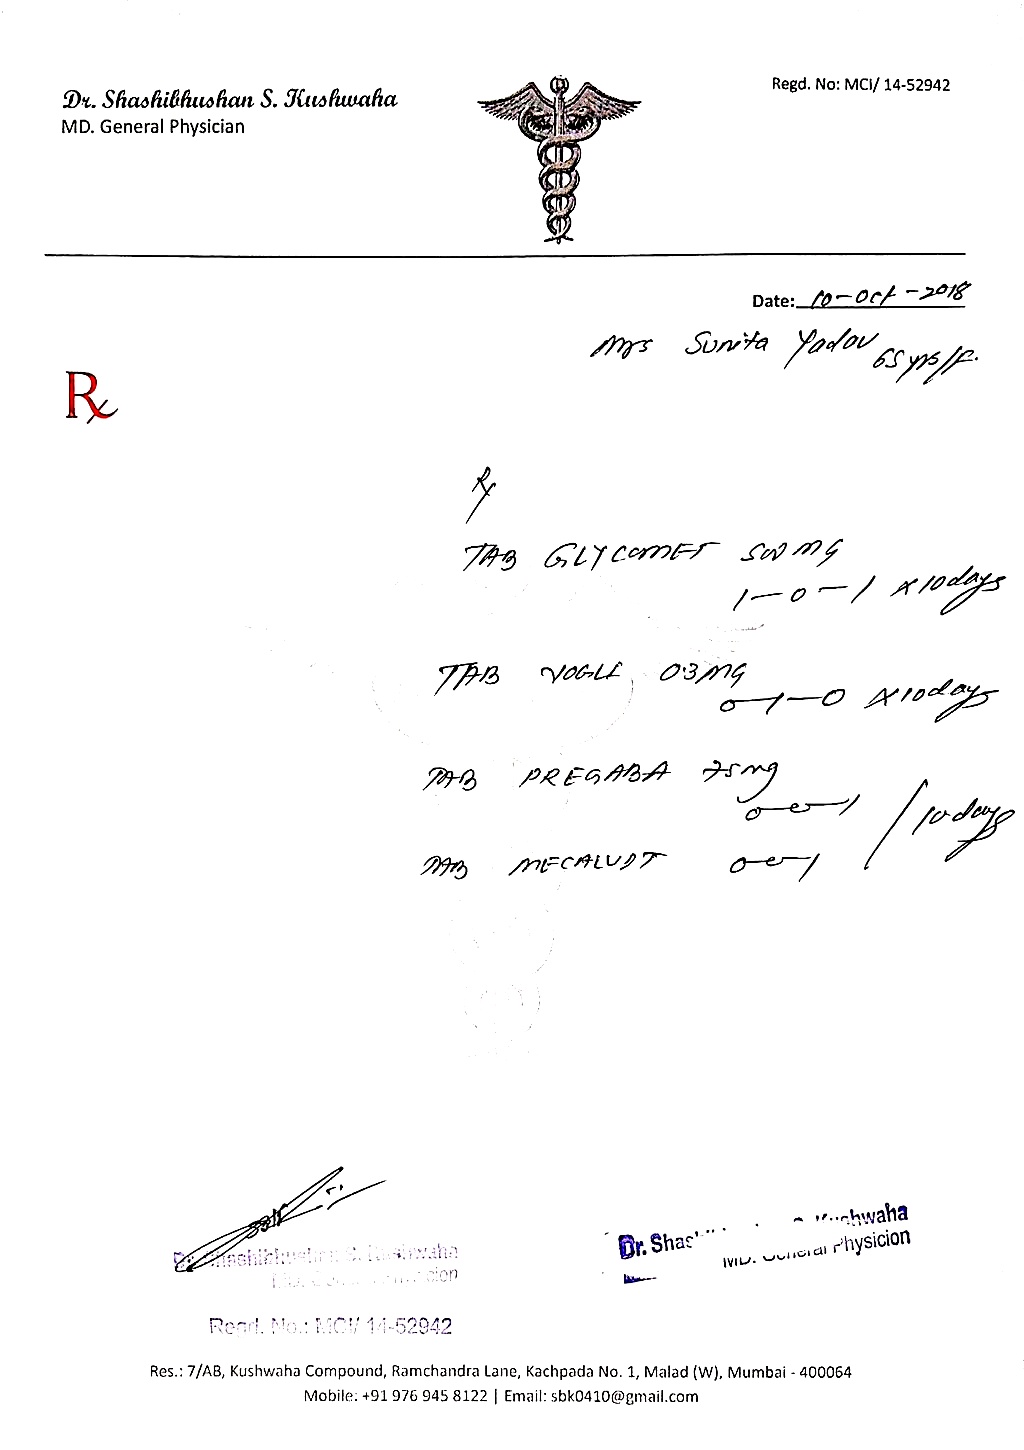 Dr. Shashibhushan S. Kushwaha
MD. General Physician
Regd. No: MCI/ 14-52942
Date: 10-Oct-2018
Mrs Sunita Yadav 65 yrs/F.
Rx
Rx
TAB GLYCOMET 500 MG
1-0-1 x 10 days
TAB VOGLI 0.3 MG
0-1-0 x 10 days
TAB PREGABA 75 mg
0-0-1
10 days
TAB 0-0-1
Dr. Shashibhushan S. Kushwaha
Regd. No.: MCI/ 14-52942
Dr. Shas Kushwaha
MD. General Physicion
Res.: 7/AB, Kushwaha Compound, Ramchandra Lane, Kachpada No. 1, Malad (W), Mumbai - 400064
Mobile: +91 976 945 8122 | Email: sbk0410@gmail.com